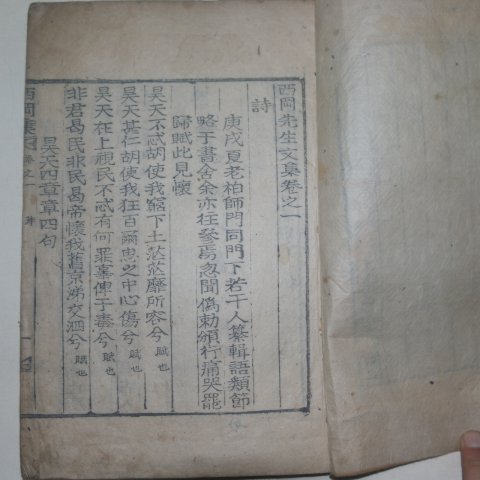 西岡先生文集卷之一
詩
庚戌夏老柏師門同門下若干人纂輯語類節
略于書舍余亦往參焉忽聞僞勅頒行痛哭罷
歸賦此見懷
昊天不忒胡使我窮下土茫茫靡所容兮 賦也
昊天甚仁胡使我狂百爾思之中心傷兮 賦也
昊天在上視民不忒有何罪辜俾于毒兮 賦也
非君曷民非民曷帝懷我舊京涕交泗兮 賦也
昊天四章章四句
西岡集 卷之一 詩 一